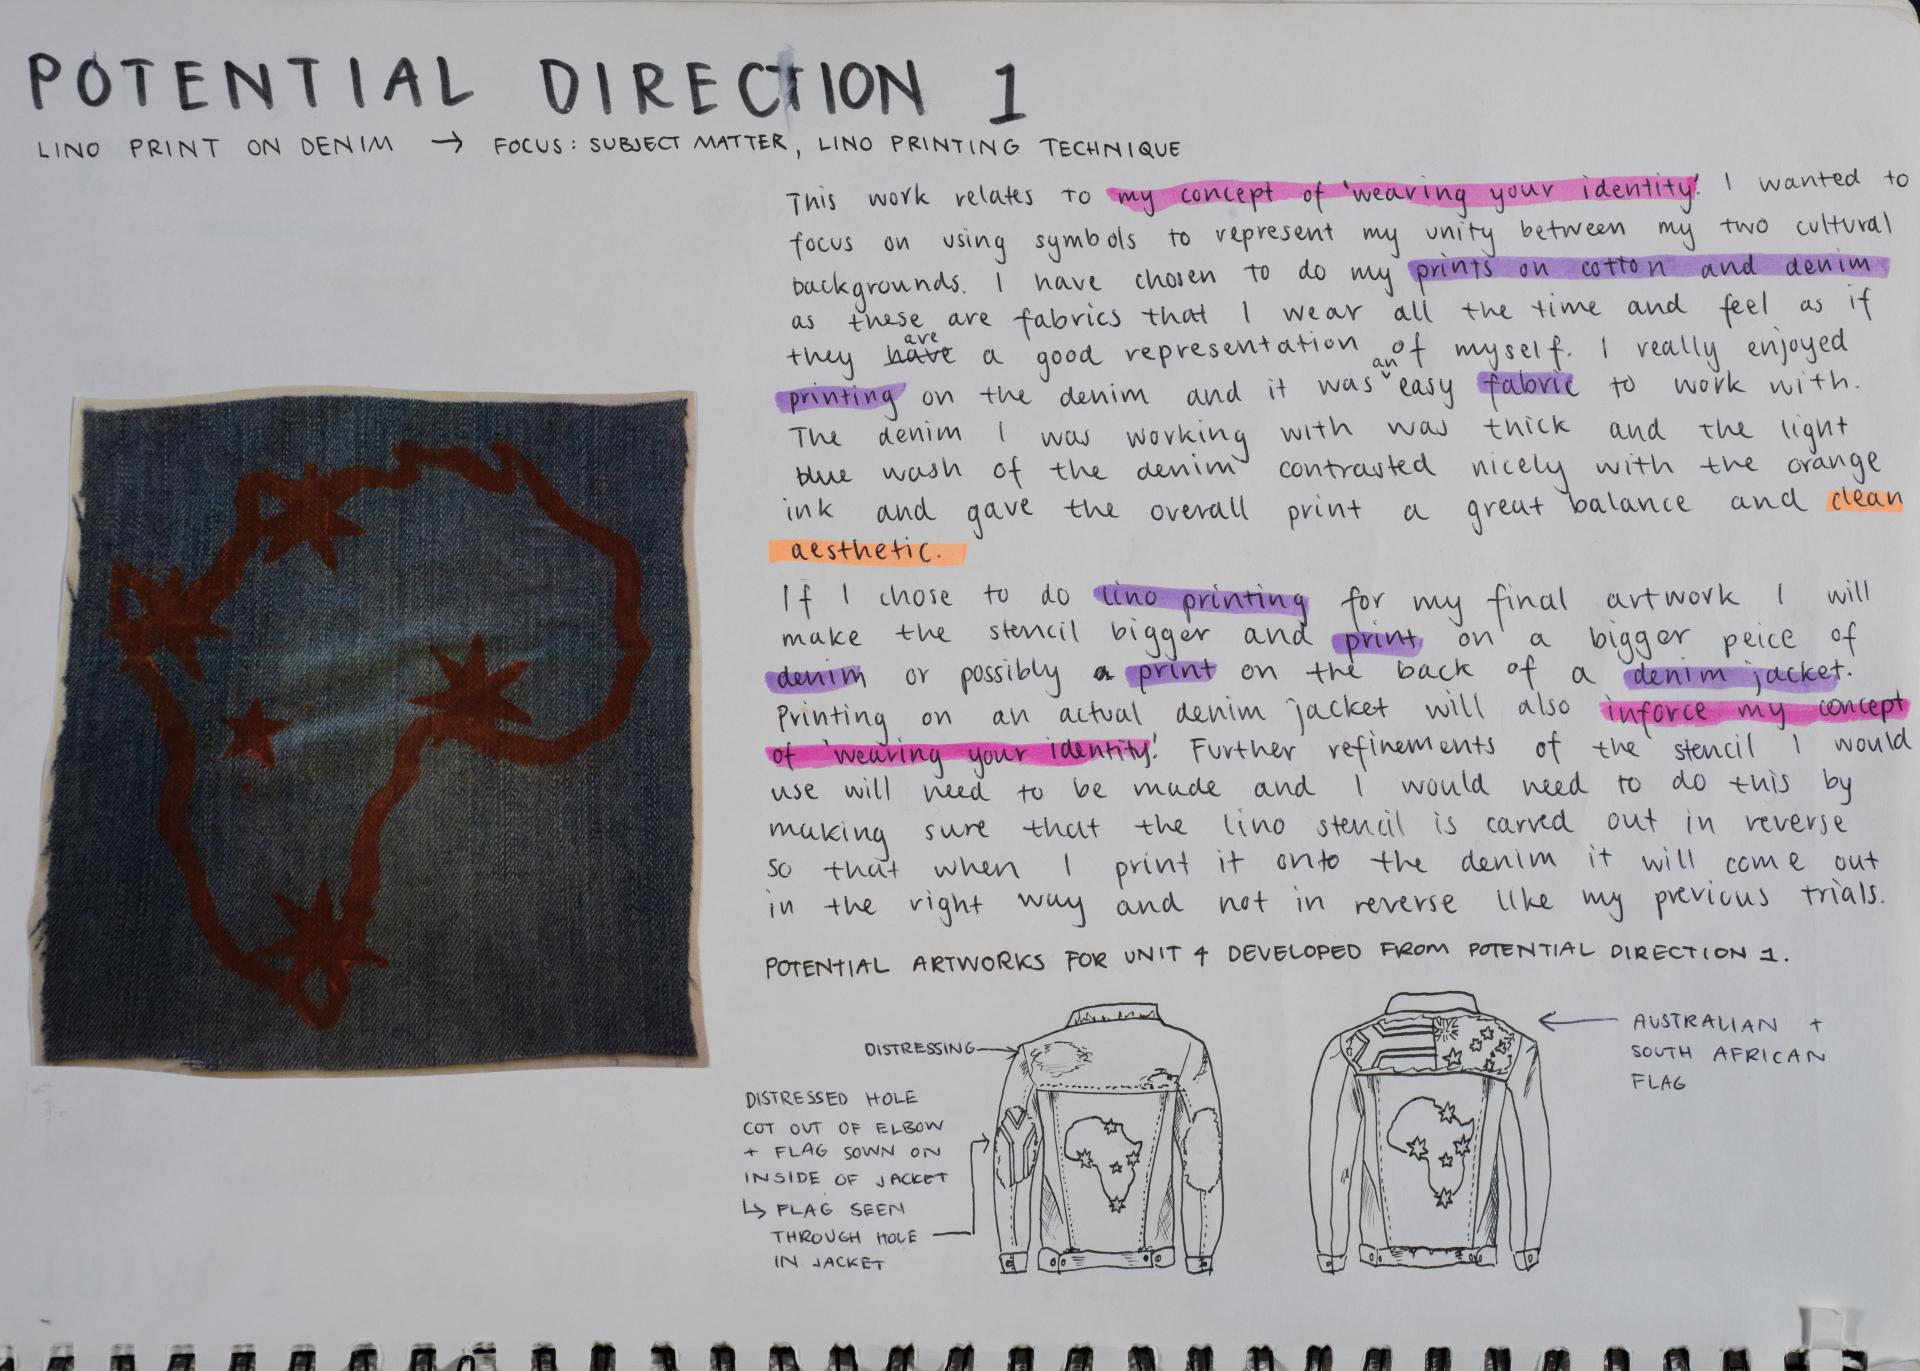 POTENTIAL DIRECTION 1
LINO PRINT ON DENIM → FOCUS: SUBJECT MATTER, LINO PRINTING TECHNIQUE
This work relates to my concept of 'wearing your identity'. I wanted to
focus on using symbols to represent my unity between my two cultural
backgrounds. I have chosen to do my prints on cotton and denim
as these are fabrics that I wear all the time and feel as if
they have are a good representation of myself. I really enjoyed
printing on the denim and it was an easy fabric to work with.
The denim I was working with was thick and the light
blue wash of the denim contrasted nicely with the orange
ink and gave the overall print a great balance and clean
aesthetic.
If I chose to do lino printing for my final artwork I will
make the stencil bigger and print on a bigger peice of
denim or possibly a print on the back of a denim jacket.
Printing on an actual denim jacket will also inforce my concept
of 'wearing your identity'. Further refinements of the stencil I would
use will need to be made and I would need to do this by
making sure that the lino stencil is carved out in reverse
so that when I print it onto the denim it will come out
in the right way and not in reverse like my previous trials.
POTENTIAL ARTWORKS FOR UNIT 4 DEVELOPED FROM POTENTIAL DIRECTION 1.
DISTRESSING
DISTRESSED HOLE
COT OUT OF ELBOW
+ FLAG SOWN ON
INSIDE OF JACKET
↳ FLAG SEEN
THROUGH HOLE
IN JACKET
AUSTRALIAN +
SOUTH AFRICAN
FLAG